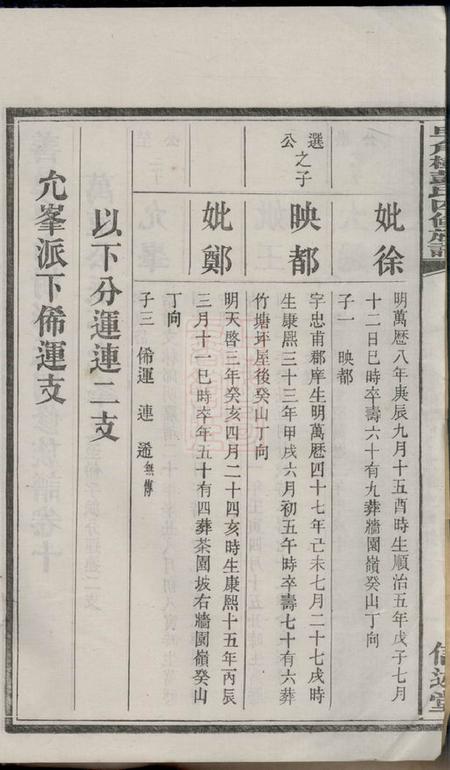 妣徐
明萬厯八年庚辰九月十五酉時生順治五年戊子七月
十二日巳時卒壽六十有九葬牆園嶺癸山丁向
子一 映都
選公之子
映都
字忠甫郡庠生明萬厯四十七年己未七月二十七戌時
生康熙三十三年甲戌六月初五午時卒壽七十有六葬
竹塘坪屋後癸山丁向
妣鄭
明天啓三年癸亥四月二十四亥時生康熙十五年丙辰
三月十一巳時卒年五十有四葬茶園坡右牆園嶺癸山
丁向
子三 俙運 連 遜無傳
以下分運連二支
允峯派下俙運支